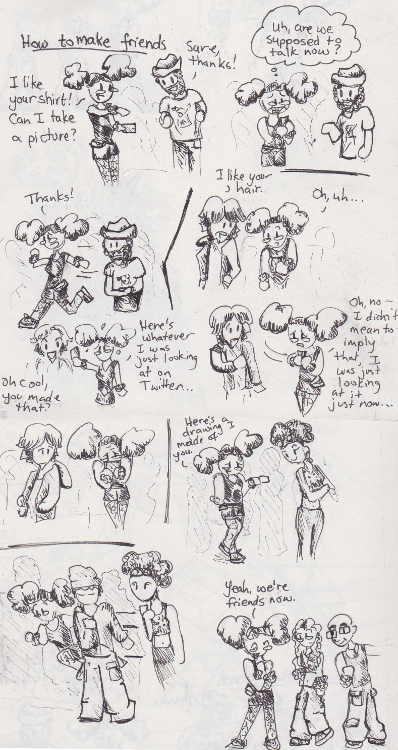 How to make friends
I like
your shirt!
Can I take
a picture?
Sure,
thanks!
Uh, are we
supposed to
talk now?
Thanks!
I like your
hair...
Oh, uh...
Here's
whatever
I was
just looking
at on
Twitter...
Oh cool,
you made
that?
Oh, no -
I didn't
mean to
imply
that, I
was just
looking
at it
just now...
Here's a
drawing I
made of
you.
Yeah, we're
friends now.